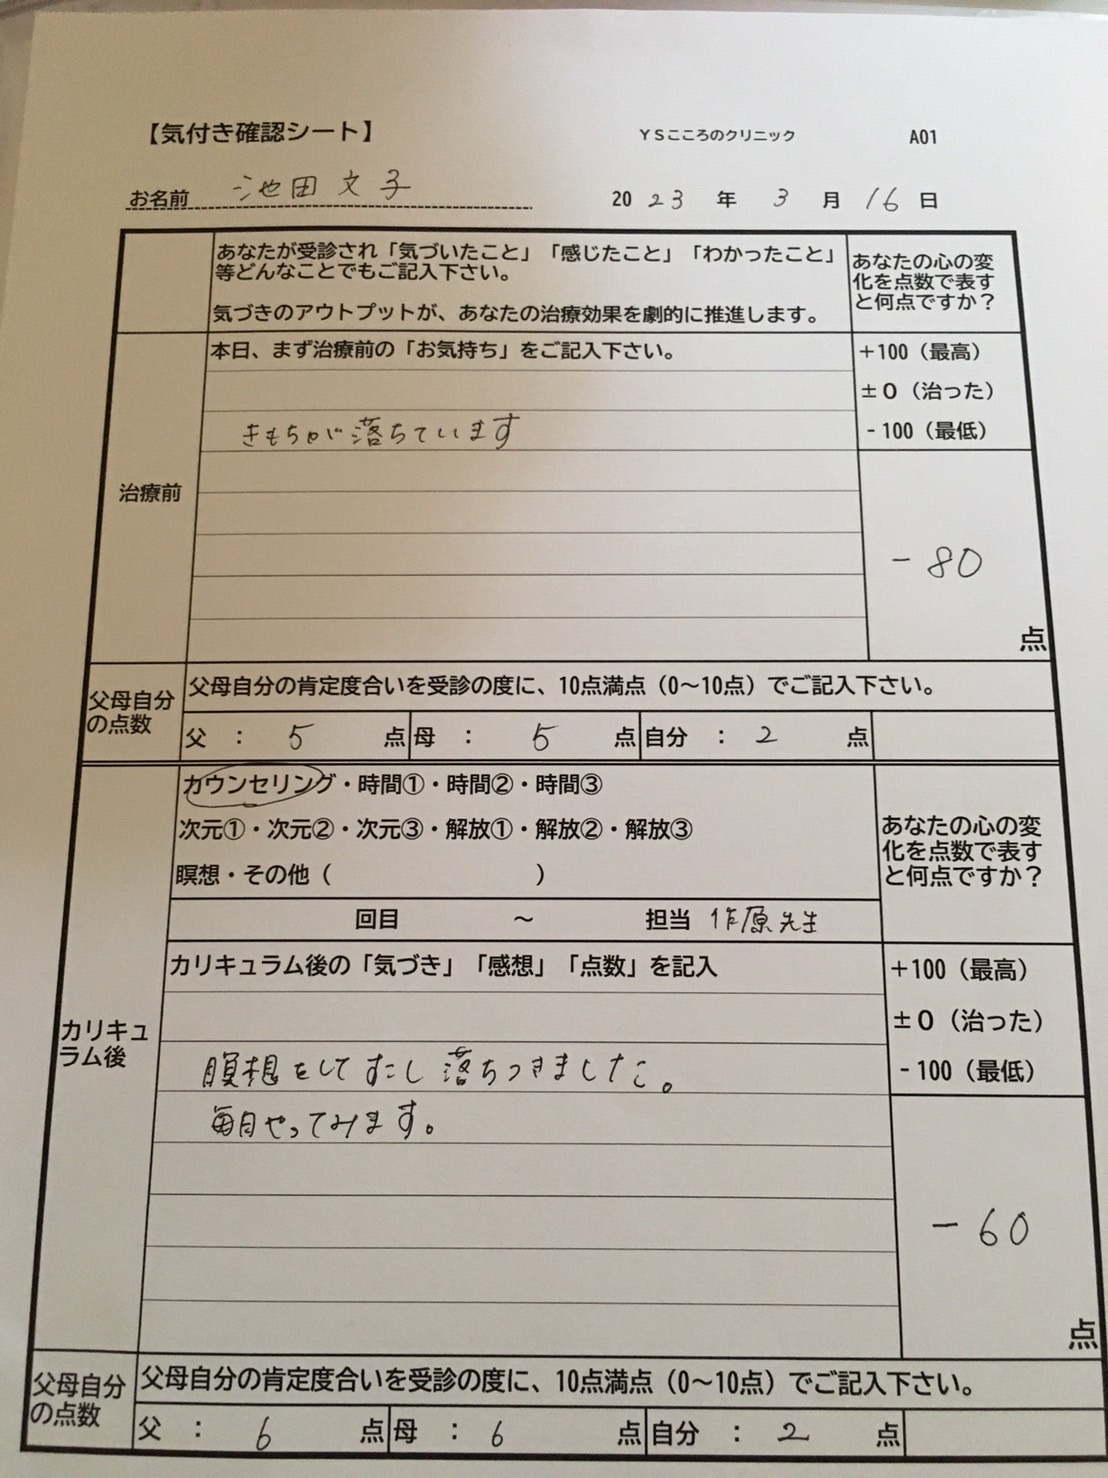 【気付き確認シート】 YSこころのクリニック A01
お名前 池田文子 2023年3月16日
あなたが受診され「気づいたこと」「感じたこと」「わかったこと」
等どんなことでもご記入下さい。
気づきのアウトプットが、あなたの治療効果を劇的に推進します。
あなたの心の変
化を点数で表す
と何点ですか？
治療前
本日、まず治療前の「お気持ち」をご記入下さい。
きもちが落ちています
+100（最高）
±0（治った）
-100（最低）
-80
点
父母自分
の点数
父母自分の肯定度合いを受診の度に、10点満点（0～10点）でご記入下さい。
父 ： 5 点 母 ： 5 点 自分 ： 2 点
カリキュ
ラム後
カウンセリング・時間①・時間②・時間③
次元①・次元②・次元③・解放①・解放②・解放③
瞑想・その他（ ）
あなたの心の変
化を点数で表す
と何点ですか？
回目 ～ 担当 作原先生
カリキュラム後の「気づき」「感想」「点数」を記入
瞑想をしてすこし落ちつきました。
毎日やってみます。
+100（最高）
±0（治った）
-100（最低）
-60
点
父母自分
の点数
父母自分の肯定度合いを受診の度に、10点満点（0～10点）でご記入下さい。
父 ： 6 点 母 ： 6 点 自分 ： 2 点